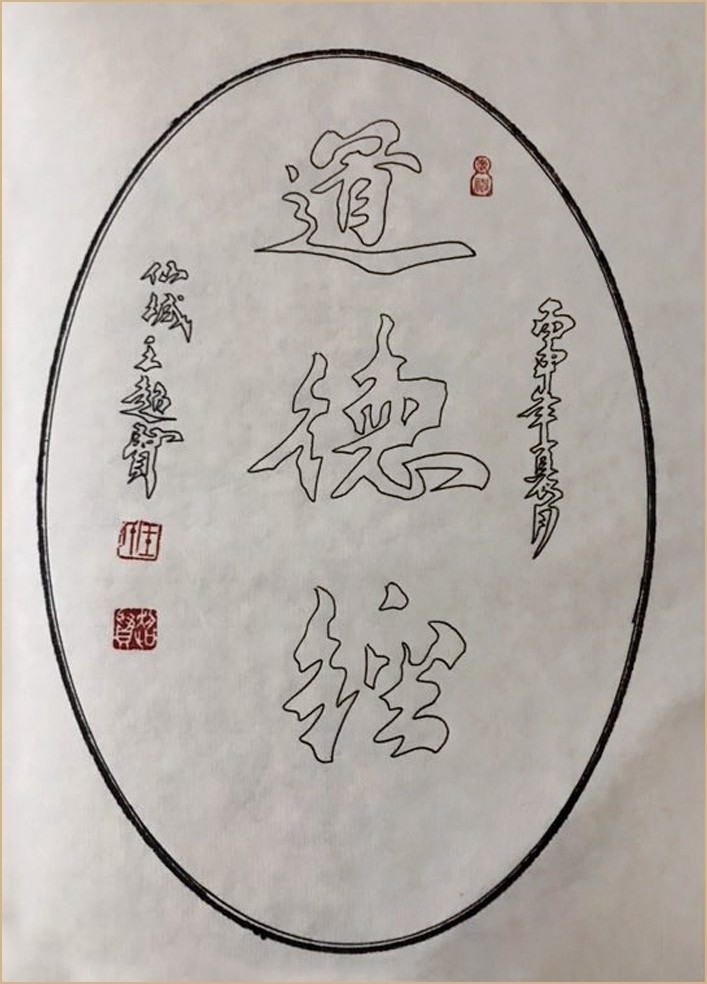 丙申年夏月
道德經
仙城王超賢
超賢